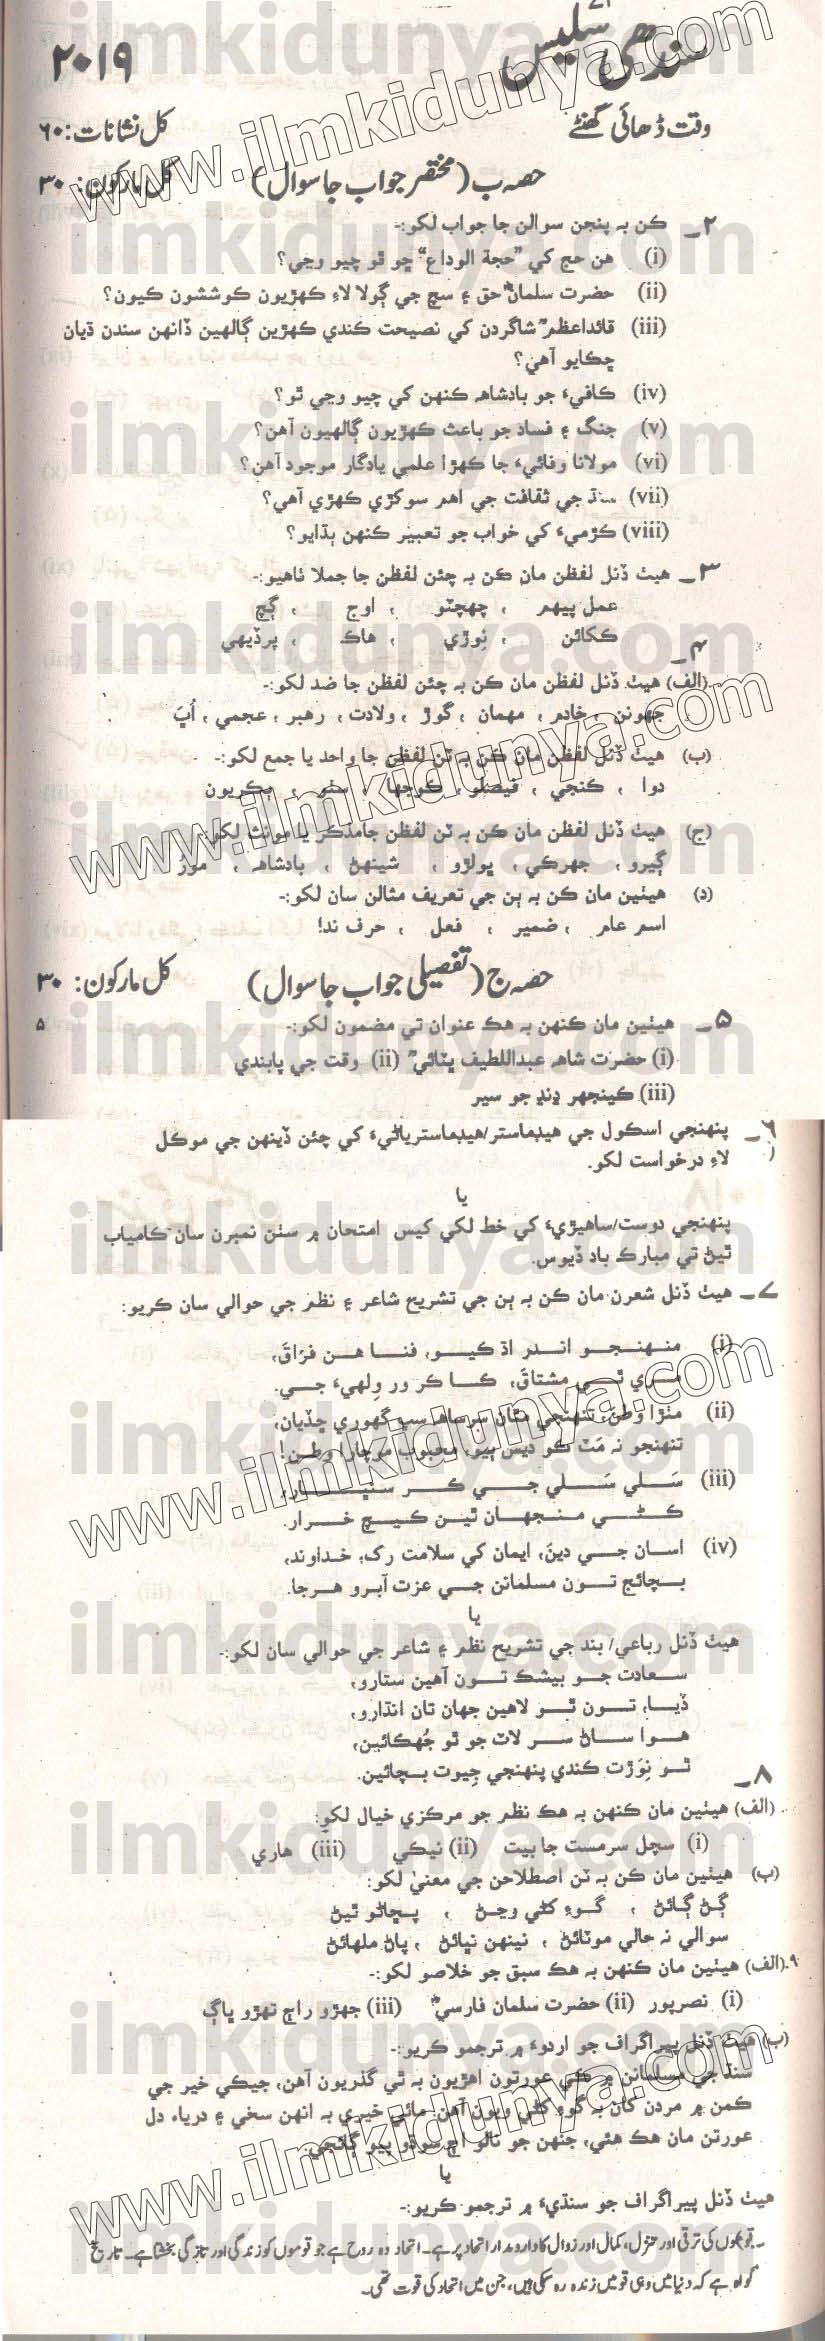 سندھی سلیس
۲۰۱۹
وقت ڈھائی گھنٹے
کل نشانات: ۶۰
حصہ ب (مختصر جواب جا سوال)
کل مارکون: ۳۰
۲_ ڪن به پنجن سوالن جا جواب لکو:-
(i) هن حج کي "حجة الوداع" ڇو ٿو چيو وڃي؟
(ii) حضرت سلمانؓ حق ۽ سچ جي ڳولا لاءِ ڪهڙيون ڪوششون ڪيون؟
(iii) قائداعظمؒ شاگردن کي نصيحت ڪندي ڪهڙين ڳالهين ڏانهن سندن ڌيان
ڇڪايو آهي؟
(iv) ڪافيءَ جو بادشاهه ڪنهن کي چيو وڃي ٿو؟
(v) جنگ ۽ فساد جو باعث ڪهڙيون ڳالهيون آهن؟
(vi) مولانا وفائيءَ جا ڪهڙا علمي يادگار موجود آهن؟
(vii) سنڌ جي ثقافت جي اهم سوکڙي ڪهڙي آهي؟
(viii) ڪڙميءَ کي خواب جو تعبير ڪنهن ٻڌايو؟
۳_ هيٺ ڏنل لفظن مان ڪن به چئن لفظن جا جملا ٺاهيو:-
عمل پيهم ، چهچٽو ، اوج ، ڳچ
ڪڪائن ، نوڙي ، هاڪ ، پرڏيهي
۴_
(الف) هيٺ ڏنل لفظن مان ڪن به چئن لفظن جا ضد لکو:-
جهونن ، خادم ، مهمان ، گوڙ ، ولادت ، رهبر ، عجمي ، اُڀَ
(ب) هيٺ ڏنل لفظن مان ڪن به ٽن لفظن جا واحد يا جمع لکو:-
دوا ، ڪنجي ، فيصلو ، ڪوجها ، سٺو ، ٻڪريون
(ج) هيٺ ڏنل لفظن مان ڪن به ٽن لفظن جا مذڪر يا مونث لکو:
ڳيرو ، جهرڪي ، ڀولڙو ، شينهن ، بادشاهه ، مورُ
(د) هيٺين مان ڪن به ٻن جي تعريف مثالن سان لکو:-
اسم عام ، ضمير ، فعل ، حرف ندا
حصہ ج (تفصیلی جواب جا سوال)
کل مارکون: ۳۰
۵_ هيٺين مان ڪنهن به هڪ عنوان تي مضمون لکو:- ۵
(i) حضرت شاهه عبداللطيف ڀٽائيؒ (ii) وقت جي پابندي
(iii) ڪينجهر ڍنڍ جو سير
۶_ پنهنجي اسڪول جي هيڊماستر/هيڊماسترياڻيءَ کي چئن ڏينهن جي موڪل
لاءِ درخواست لکو.
يا
پنهنجي دوست/ساهيڙيءَ کي خط لکي کيس امتحان ۾ سٺن نمبرن سان ڪامياب
ٿيڻ تي مبارڪ باد ڏيوس.
۷_ هيٺ ڏنل شعرن مان ڪن به ٻن جي تشريح شاعر ۽ نظم جي حوالي سان ڪريو:
(i) منهنجو اندر اڌ ڪيو، فنا هن فراقَ،
مري ٿي مشتاقَ، ڪا ڪر ور ولهيءَ جي.
(ii) مٺڙا وطن، تنهنجي مٿان سر ساهه سڀ گهوري ڇڏيان،
تنهنجو نه مَٽ ڪو ديس ٻيو، محبوب موچارا وطن!
(iii) سَلي سَلي جي ڪر سنڀار،
ڪڻي منجهان ٿين ڪيچ خرار.
(iv) اسان جي دين، ايمان کي سلامت رک، خداوند،
بچائج تون مسلمانن جي عزت آبرو هرجا.
يا
هيٺ ڏنل رباعي/ بند جي تشريح نظم ۽ شاعر جي حوالي سان لکو:-
سعادت جو بيشڪ تون آهين ستارو،
ڏيا، تون ٿو لاهين جهان تان انڌارو،
هوا ساڻ سر لاٽ جو ٿو جُهڪائين،
ٿو نِوَڙت ڪندي پنهنجي جيوت بچائين.
۸_
(الف) هيٺين مان ڪنهن به هڪ نظم جو مرڪزي خيال لکو:
(i) سچل سرمست جا بيت (ii) نيڪي (iii) هاري
(ب) هيٺين مان ڪن به ٽن اصطلاحن جي معنيٰ لکو:
ڳڻ ڳائڻ ، گوءِ کڻي وڃڻ ، پڇاڻو ٿيڻ
سوالي نه خالي موٽائڻ ، نينهن نڀائڻ ، پاڻ ملهائڻ
۹.(الف) هيٺين مان ڪنهن به هڪ سبق جو خلاصو لکو:-
(i) نصرپور (ii) حضرت سلمان فارسيؓ (iii) جهڙو راڄ تهڙو ڀاڳ
(ب) هيٺ ڏنل پيراگراف جو اردوءَ ۾ ترجمو ڪريو:-
سنڌ جي مسلمانن ۾ ڪي عورتون اهڙيون به ٿي گذريون آهن، جيڪي خير جي
ڪمن ۾ مردن کان به گوءِ کڻي ويون آهن. مائي خيري به انهن سخي ۽ درياءَ دل
عورتن مان هڪ هئي، جنهن جو نالو اڄ سوڌو پيو ڳائجي.
يا
هيٺ ڏنل پيراگراف جو سنڌيءَ ۾ ترجمو ڪريو:-
قوموں کی ترقی اور تنزل، کمال اور زوال کا دارومدار اتحاد پر ہے۔ اتحاد وہ روح ہے جو قوموں کو زندگی اور تازگی بخشتا ہے۔ تاریخ
گواہ ہے کہ دنیا میں وہی قومیں زندہ رہ سکی ہیں، جن میں اتحاد کی قوت تھی۔
www.ilmkidunya.com
ilmkidunya.com